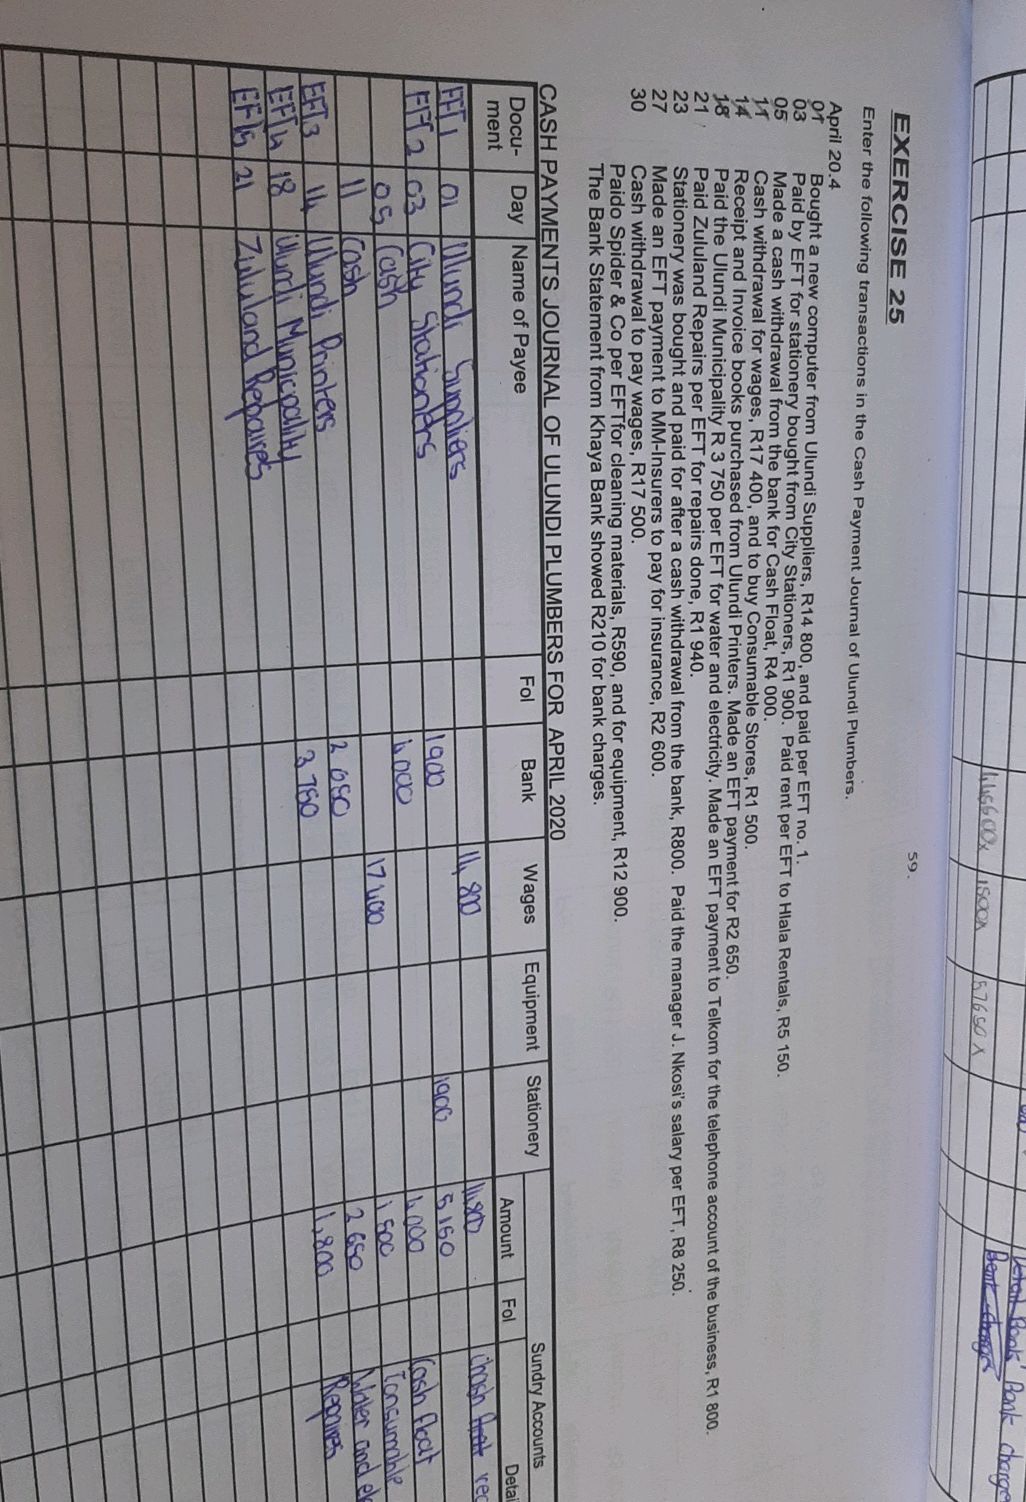 59.
EXERCISE 25
Enter the following transactions in the Cash Payment Journal of Ulundi Plumbers.
April 20.4
01 Bought a new computer from Ulundi Suppliers, R14 800, and paid per EFT no. 1.
03 Paid by EFT for stationery bought from City Stationers, R1 900. Paid rent per EFT to Hlala Rentals, R5 150.
05 Made a cash withdrawal from the bank for Cash Float, R4 000.
11 Cash withdrawal for wages, R17 400, and to buy Consumable Stores, R1 500.
14 Receipt and Invoice books purchased from Ulundi Printers. Made an EFT payment for R2 650.
18 Paid the Ulundi Municipality R 3 750 per EFT for water and electricity. Made an EFT payment to Telkom for the telephone account of the business, R1 800.
21 Paid Zululand Repairs per EFT for repairs done, R1 940.
23 Stationery was bought and paid for after a cash withdrawal from the bank, R800. Paid the manager J. Nkosi's salary per EFT, R8 250.
27 Made an EFT payment to MM-Insurers to pay for insurance, R2 600.
30 Cash withdrawal to pay wages, R17 500.
Paido Spider & Co per EFTfor cleaning materials, R590, and for equipment, R12 900.
The Bank Statement from Khaya Bank showed R210 for bank charges.
CASH PAYMENTS JOURNAL OF ULUNDI PLUMBERS FOR APRIL 2020
Docu-ment Day Name of Payee Fol Bank Wages Equipment Stationery Sundry Accounts
Amount Fol Detai
EFT1 01 Ulundi Suppliers 14 800 14 800
EFT 2 03 City Stationers 1900 1900 5 150
05 Cash 4 000 4 000 Cash float
11 Cash 17 400 1 500 Consumable
EFT3 14 Ulundi Printers 2 650 2 650 Water and el
EFT4 18 Ulundi Municipality 3 750 1,800 Repaires
EFT5 21 Zululand Repaires